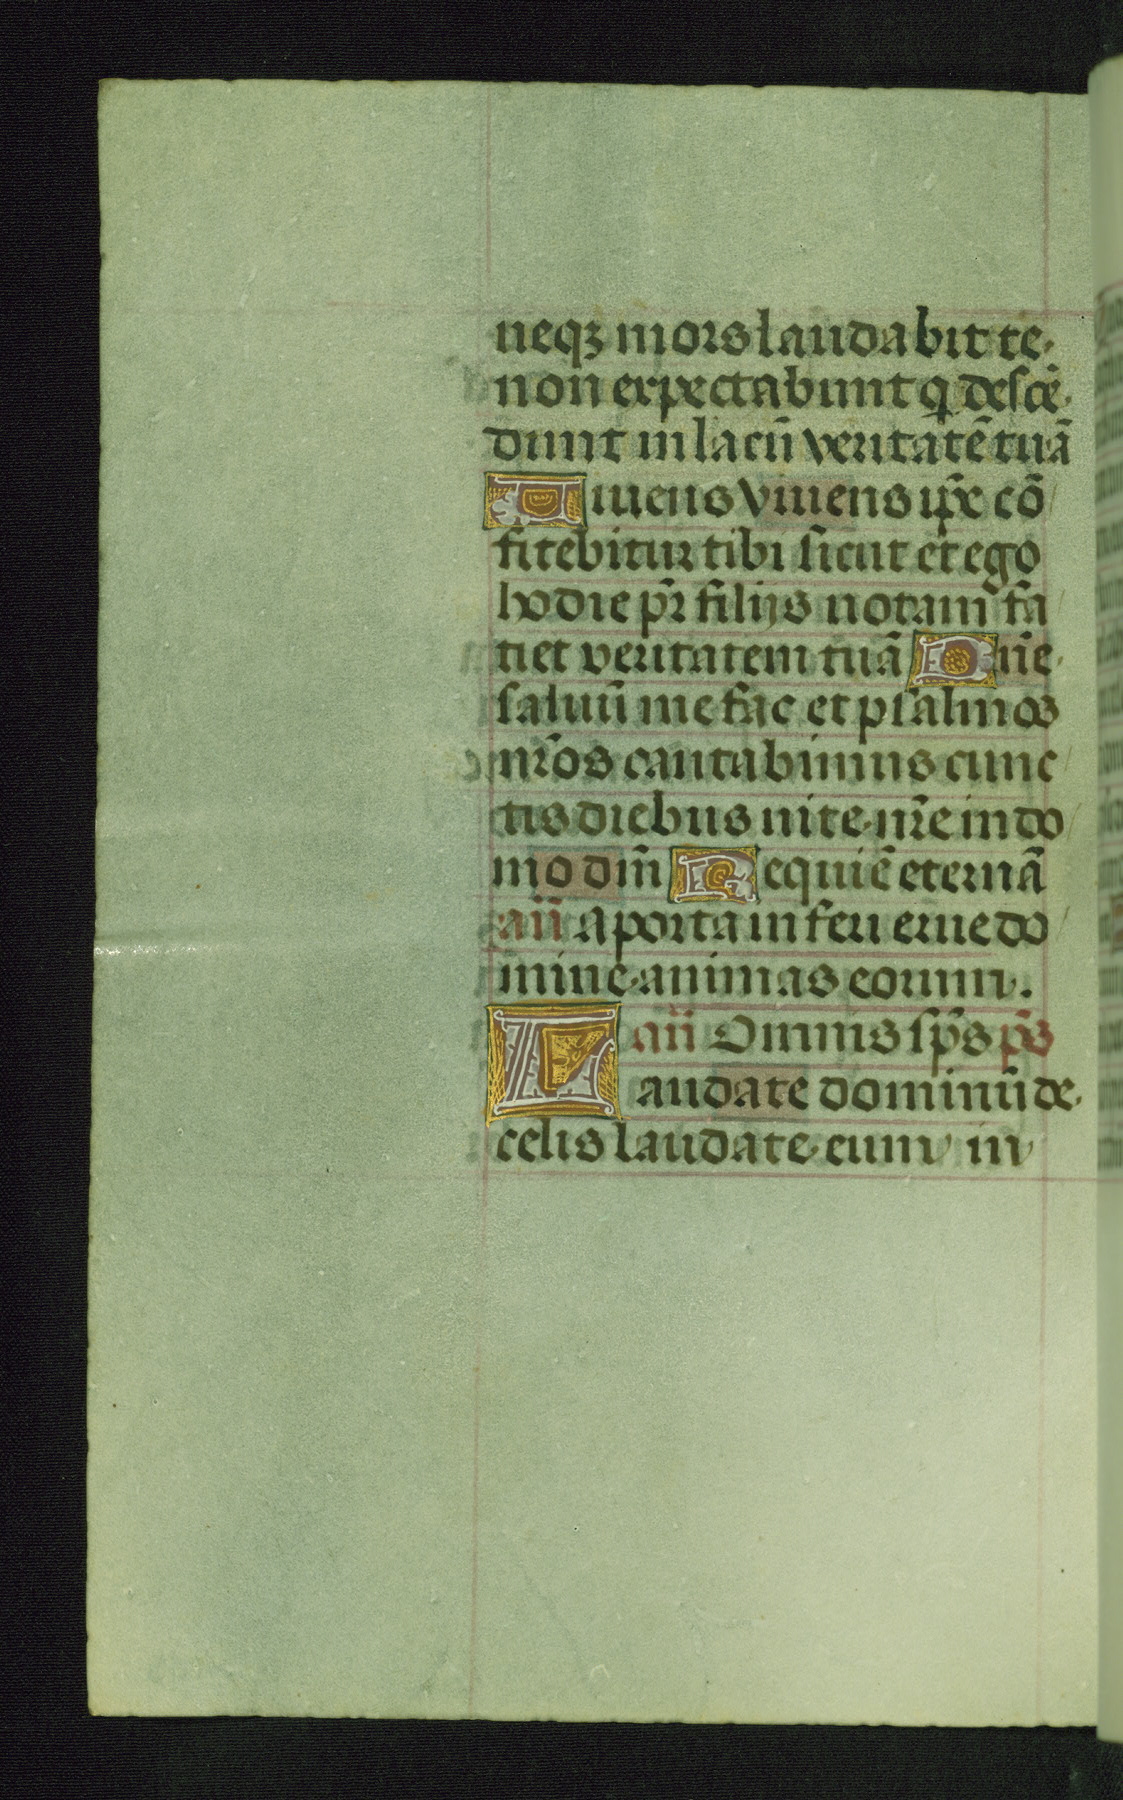 neqꝫ mors laudabit te·
non expectabunt q̇ descē·
dunt in lacū veritatē tuā
Uiuens viuens ip̄e cō
fitebitur tibi sicut et ego
hodie pr̄ filijs notam fa
tiet veritatem tuā Dn̄e·
saluū me fac et psalmos
nr̄os cantabimus cunc
tis diebus uite nr̄e in do
mo dn̄i Requiē eternā
añ A porta inferi erue do
mine animas eorum.
añ Omnis sp̄s p̄s
Laudate dominū de·
celis laudate eum in